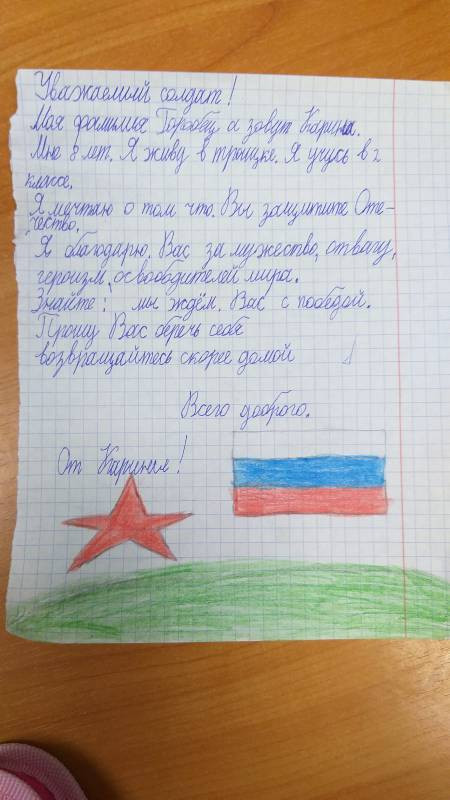 Уважаемый солдат!
Моя фамилия Горобец а зовут Карина.
Мне 8 лет. Я живу в троицке. Я учусь в 2
классе.
Я мечтаю о том что. Вы защитите Оте-
чество.
Я благодарю. Вас за мужество, отвагу,
героизм, освободителей мира.
Знайте: мы ждём. Вас с победой.
Прошу Вас беречь себе
возвращайтесь скорее домой
Всего доброго.
От Карины!